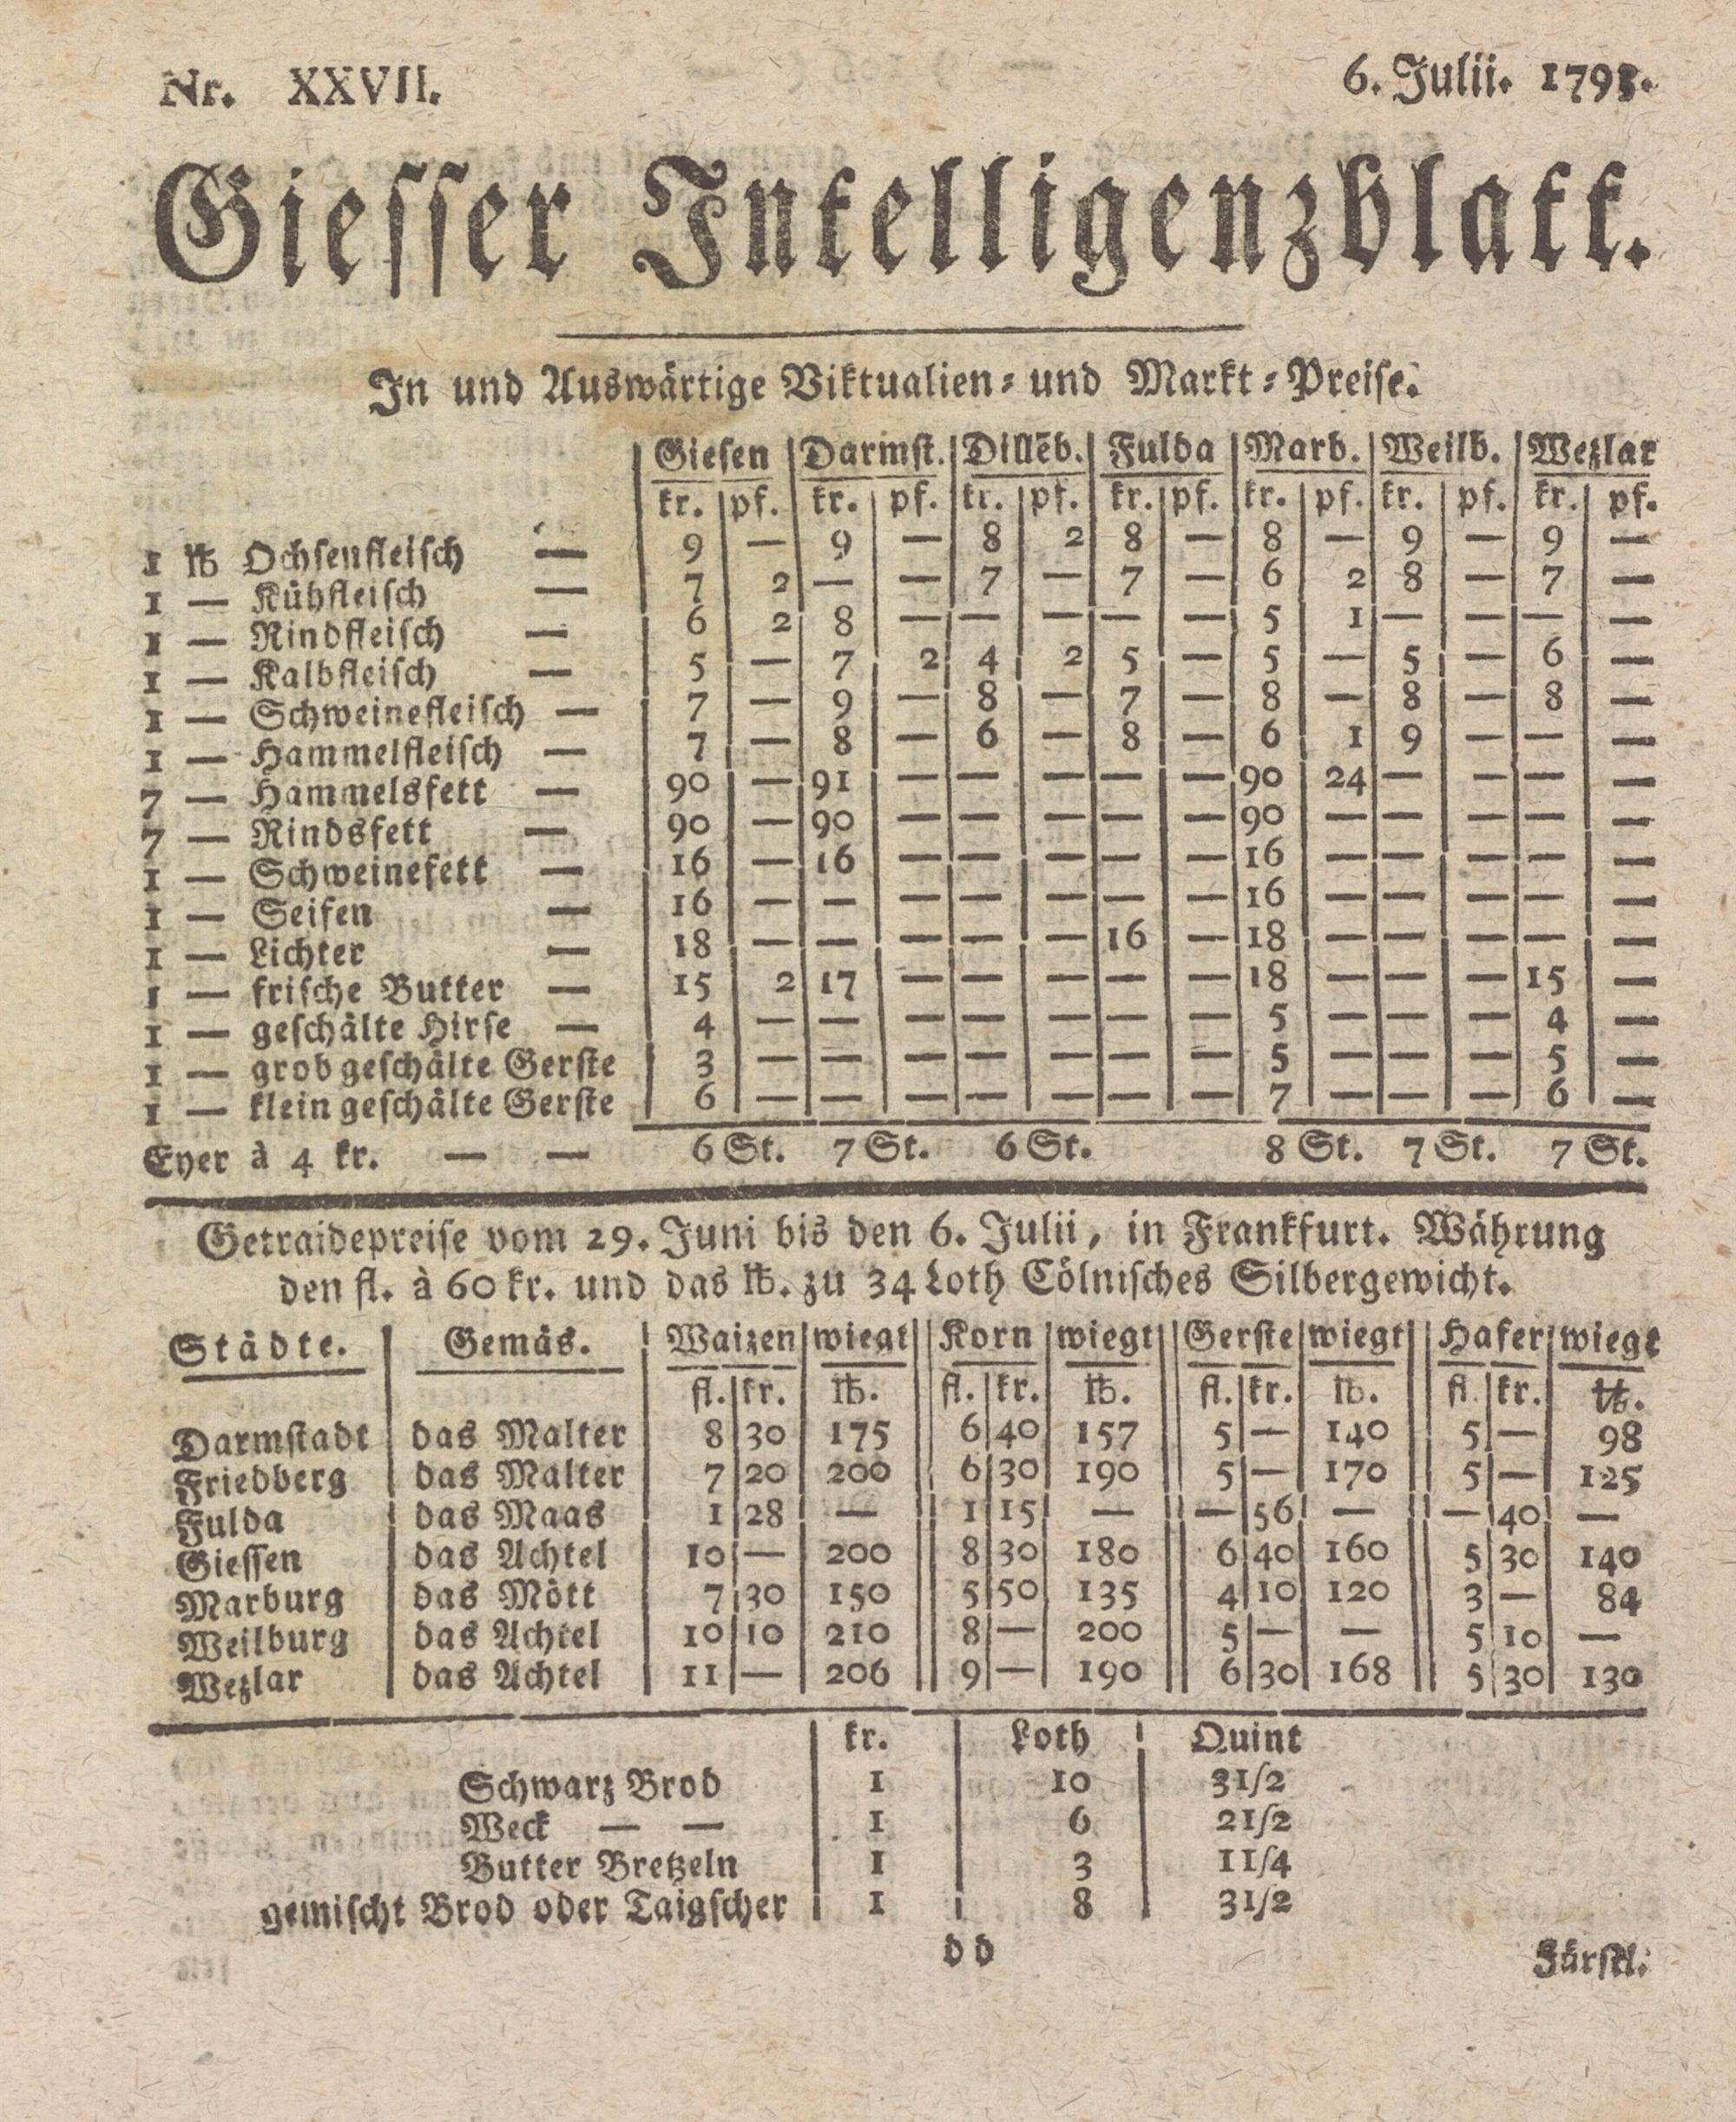 Nr. XXVII. 6. Julii. 1793.
Giesser Intelligenzblatt.
In und Auswärtige Viktualien= und Markt=Preise.
Giesen | Darmst. | Dillēb. | Fulda | Marb. | Weilb. | Wezlar
kr. | pf. | kr. | pf. | kr. | pf. | kr. | pf. | kr. | pf. | kr. | pf. | kr. | pf.
1 ℔ Ochsenfleisch — 9 — 9 — 8 2 8 — 8 — 9 — 9 —
1 — Kühfleisch — 7 2 — — 7 — 7 — 6 2 8 — 7 —
1 — Rindfleisch — 6 2 8 — — — — — 5 1 — — — —
1 — Kalbfleisch — 5 — 7 2 4 2 5 — 5 — 5 — 6 —
1 — Schweinefleisch — 7 — 9 — 8 — 7 — 8 — 8 — 8 —
1 — Hammelfleisch — 7 — 8 — 6 — 8 — 6 1 9 — — —
7 — Hammelsfett — 90 — 91 — — — — — 90 24 — — — —
7 — Rindsfett — 90 — 90 — — — — — 90 — — — — —
1 — Schweinefett — 16 — 16 — — — — — 16 — — — — —
1 — Seifen — 16 — — — — — — — 16 — — — — —
1 — Lichter — 18 — — — — — 16 — 18 — — — — —
1 — frische Butter — 15 2 17 — — — — — 18 — — — 15 —
1 — geschälte Hirse — 4 — — — — — — — 5 — — — 4 —
1 — grob geschälte Gerste 3 — — — — — — — 5 — — — 5 —
1 — klein geschälte Gerste 6 — — — — — — — 7 — — — 6 —
Eyer à 4 kr. — — 6 St. 7 St. 6 St. 8 St. 7 St. 7 St.
Getraidepreise vom 29. Juni bis den 6. Julii, in Frankfurt. Währung
den fl. à 60 kr. und das ℔. zu 34 Loth Cölnisches Silbergewicht.
Städte. | Gemäs. | Waizen | wiegt || Korn | wiegt || Gerste | wiegt || Hafer | wiegt
fl. | kr. | ℔. || fl. | kr. | ℔. || fl. | kr. | ℔. || fl. | kr. | ℔.
Darmstadt | das Malter | 8 | 30 | 175 || 6 | 40 | 157 || 5 | — | 140 || 5 | — | 98
Friedberg | das Malter | 7 | 20 | 200 || 6 | 30 | 190 || 5 | — | 170 || 5 | — | 125
Fulda | das Maas | 1 | 28 | — || 1 | 15 | — || — | 56 | — || — | 40 | —
Giessen | das Achtel | 10 | — | 200 || 8 | 30 | 180 || 6 | 40 | 160 || 5 | 30 | 140
Marburg | das Mött | 7 | 30 | 150 || 5 | 50 | 135 || 4 | 10 | 120 || 3 | — | 84
Weilburg | das Achtel | 10 | 10 | 210 || 8 | — | 200 || 5 | — | — || 5 | 10 | —
Wezlar | das Achtel | 11 | — | 206 || 9 | — | 190 || 6 | 30 | 168 || 5 | 30 | 130
kr. | Loth | Quint
Schwarz Brod | 1 | 10 | 31/2
Weck — — | 1 | 6 | 21/2
Butter Bretzeln | 1 | 3 | 11/4
gemischt Brod oder Taigscher | 1 | 8 | 31/2
d d Fürstl.